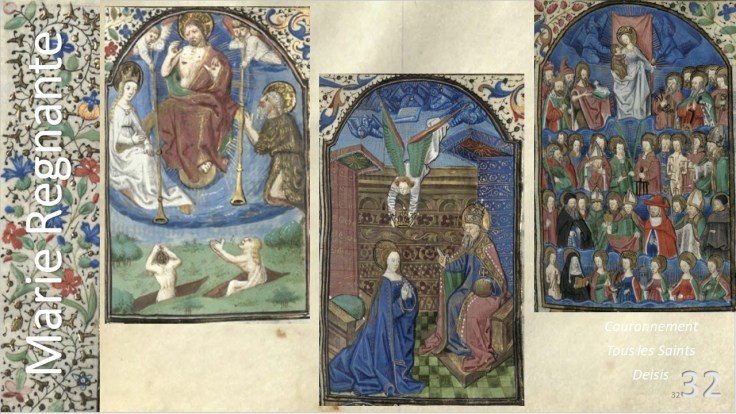 Marie Regnante
Couronnement
Tous les Saints
Deisis
32
32